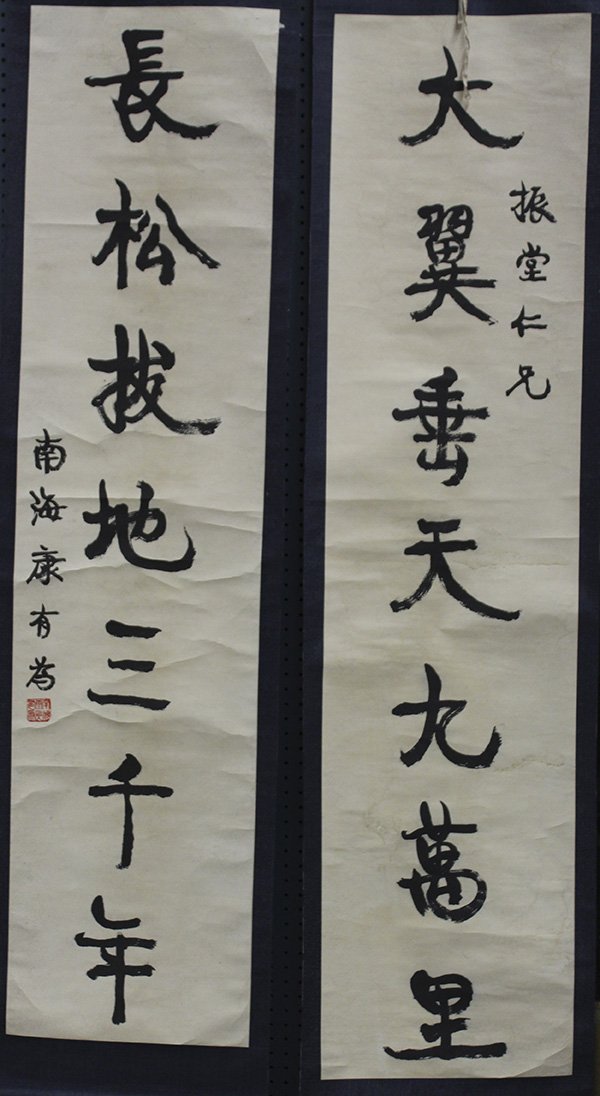 大翼垂天九萬里
振堂仁兄
長松拔地三千年
南海康有為